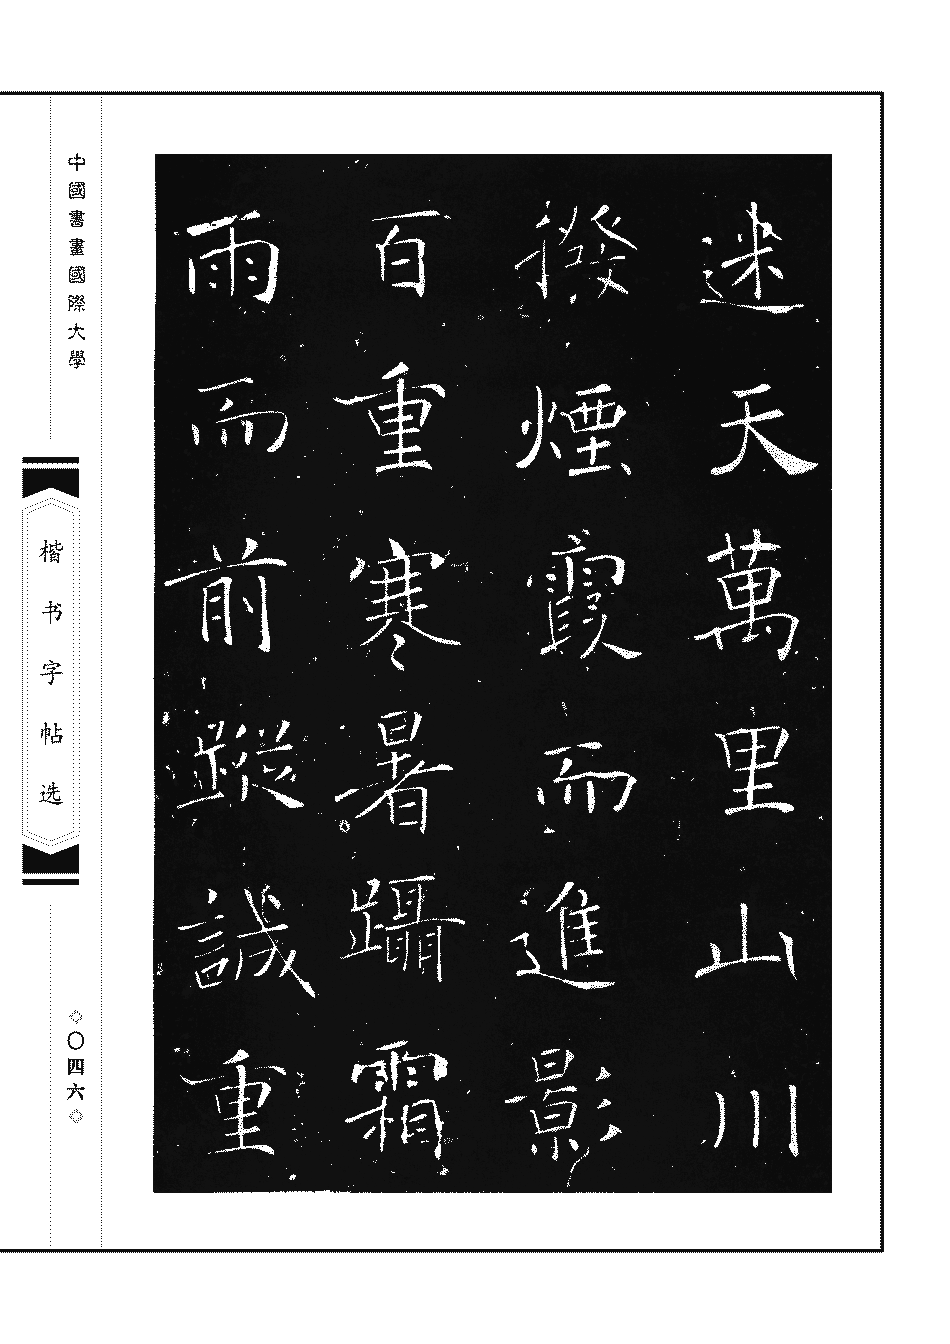 迷天萬里山川
撥煙霞而進影
百重寒暑躡霜
雨而前蹤誠重
中國書畫國際大學
楷书字帖选
◇〇四六◇